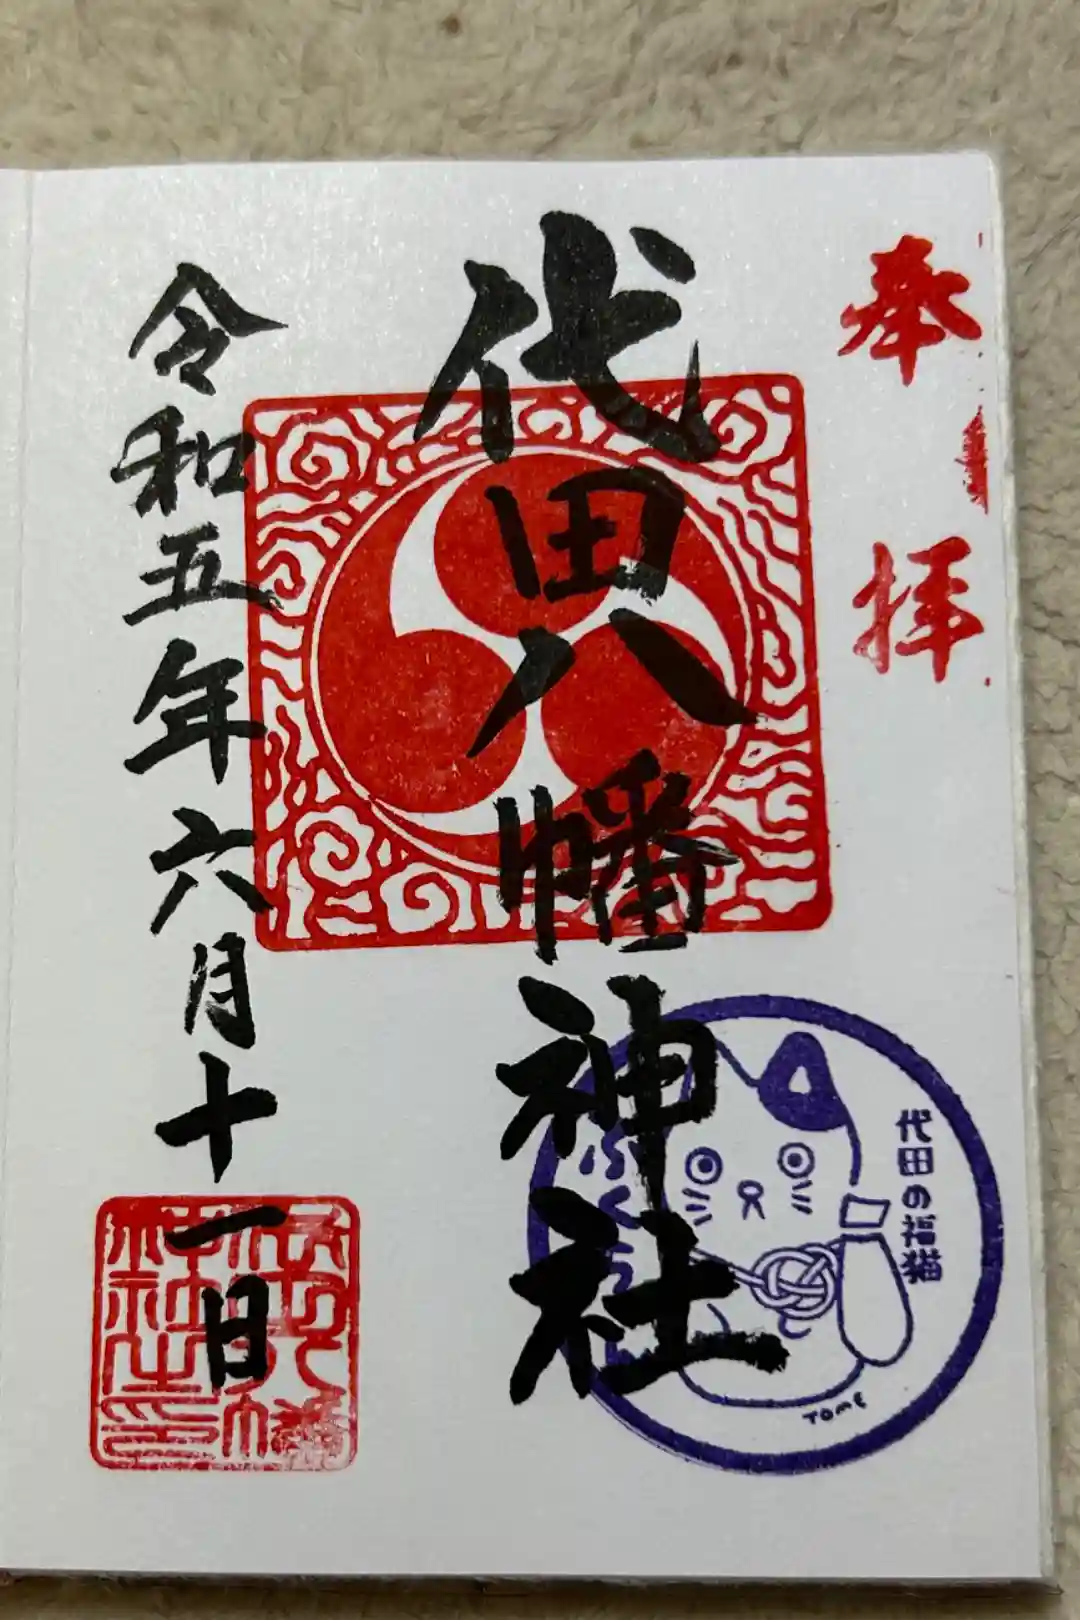 奉拝
代田八幡神社
令和五年六月十一日
代田の福猫
TOME